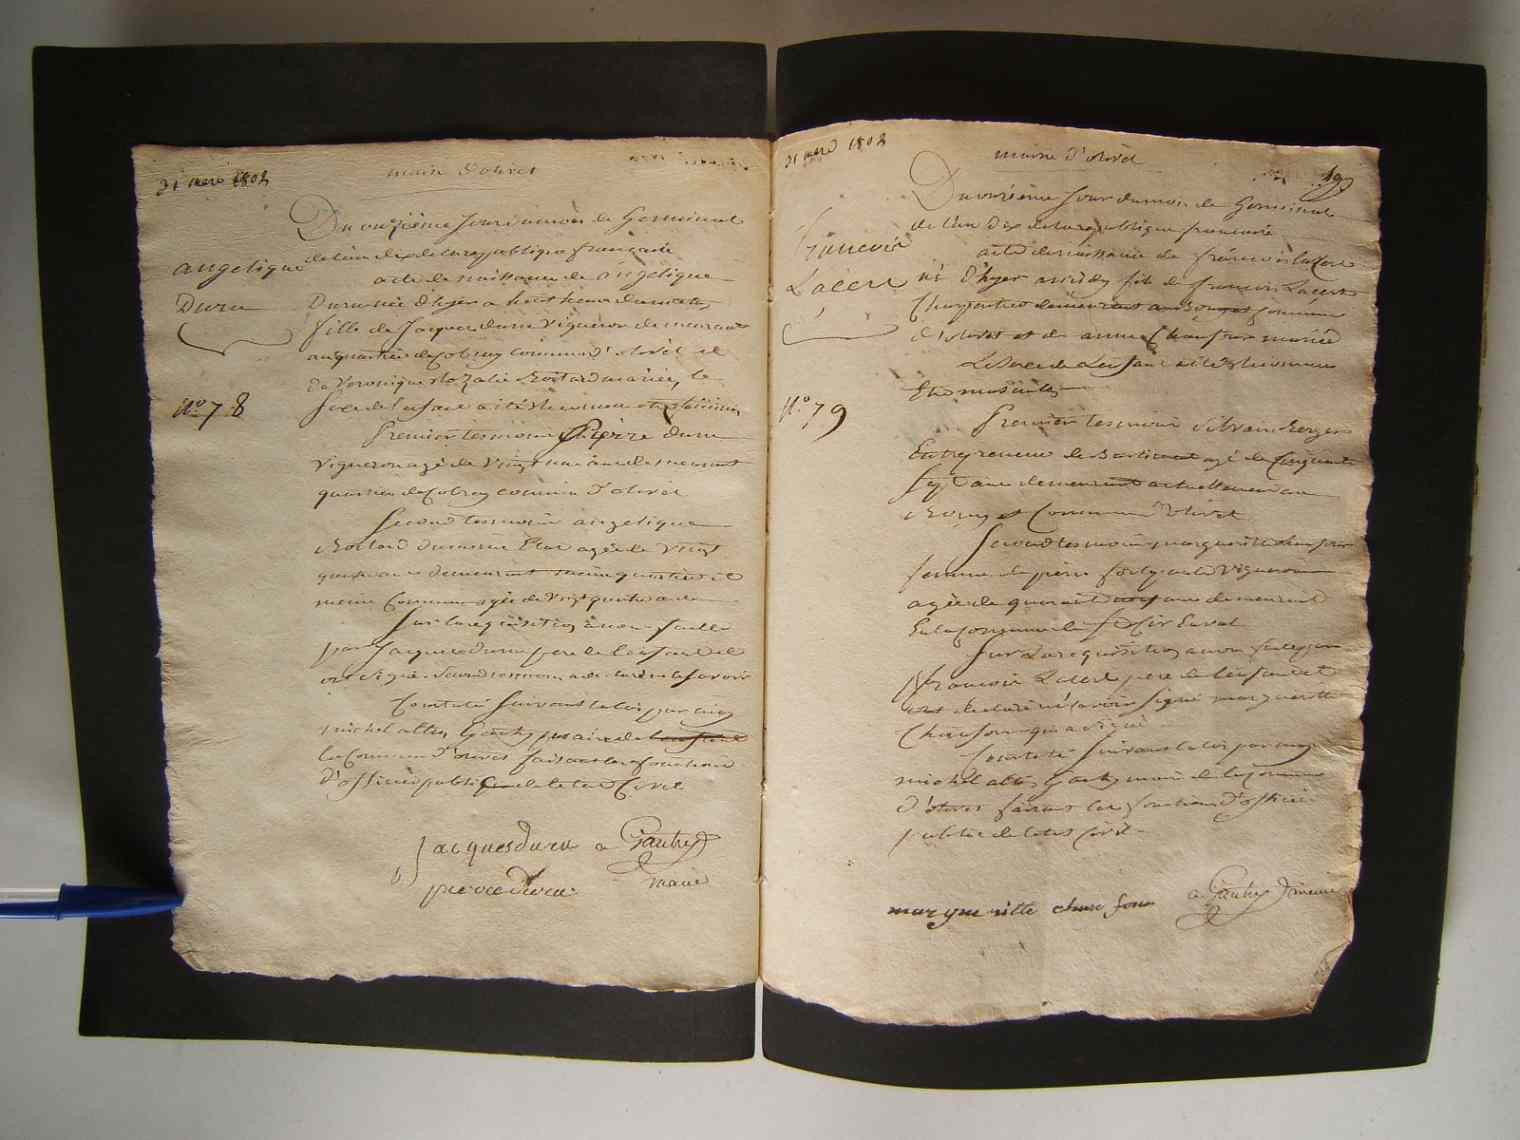 31 mars 1802
mairie d'olivet
angelique
Duru
N.o 78
Du onzième jour du mois de Germinal
de l'an dix de la republique francaise
acte de naissance de angelique
Duru née d'hyer a huit heure du matin
fille de Jacques duru vigneron demeurant
au quartier de commune d'olivet et
de Veronique Rozalie Rottard mariée, le
sexe de l'enfant a été reconnu etre féminin
Premier tesmoin Pierre duru
vigneron agé de vingt ans demeurant
quartier de commune d'olivet
Second tesmoin angelique
agée de vingt
quatre ans demeurant meme quartier et
meme Commune agée de vingt quatre ans
Sur la requisition a nous faitte
par Jacques duru pere de l'enfant et
ont signé Second tesmoin a declaré ne savoir
Constaté suivant la loi par moi
michel altin Gautry maire de
la Commune d'olivet faisant les fonctions
d'officier public de l'etat Civil
jacques duru a Gautry
pierre duru maire
31 mars 1802
mairie d'olivet
49
francois
Lacere
N.o 79
Du onzième jour du mois de Germinal
de l'an dix de la republique francaise
acte de naissance de francois lacere
né d'hyer fils de francois Lacere
Charpentier demeurant au Bourg commune
d'olivet et de anne Chaufour mariée
Le Sexe de L'enfant a été reconnu
Etre masculin
Premier tesmoin Silvain Berger
Entrepreneur de Batiment agé de Cinquante
Sept ans demeurant actuellement au
Bourg et Commune d'olivet
Second tesmoin marguerite chaufour
femme de pierre vigneron
agée de quarante ans demeurant
En la Commune de St Cir Enval
Sur La requisition a nous faitte par
francois Lacere pere de l'enfant et
ont declaré ne savoir signé marguerite
Chaufour qui a signé
Constaté Suivant la loi par moy
michel altin Gautry maire de la Commune
d'olivet faisant les fonctions d'officier
public de l'etat Civil
margueritte chaufour a Gautry maire